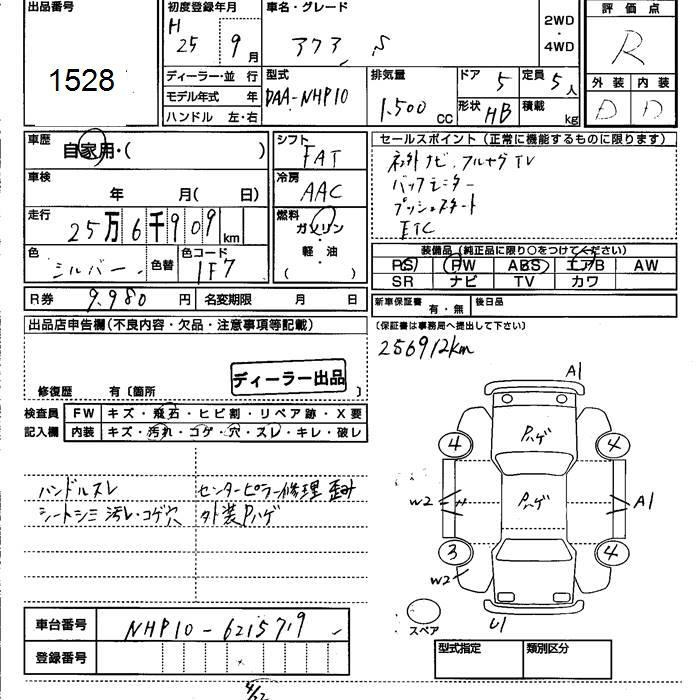 出品番号
1528
初度登録年月
H
25 9月
車名・グレード
アクア S
2WD
・
4WD
評価点
R
ディーラー・並行
モデル年式 年
ハンドル 左・右
型式
DAA-NHP10
排気量
1,500 CC
ドア 5
定員 5人
形状 HB
積載 kg
外装 内装
D D
車歴
自家用・( )
車検
年 月( 日)
走行
25万6千909 km
色
シルバー
色替
色コード
1F7
シフト
FAT
冷房
AAC
燃料
ガソリン
・
軽・油
( )
セールスポイント(正常に機能するものに限ります)
ナビ、フルセグTV
バックモニター
プッシュスタート
ETC
装備品(純正品に限り○をつけてください)
PS PW ABS エアB AW
SR ナビ TV カワ
R券 9,980円 名変期限 月 日
新車保証書 有・無 後日品
(保証書は事務局へ提出して下さい)
256912km
出品店申告欄(不良内容・欠品・注意事項等記載)
ディーラー出品
修復歴 有〔箇所 〕
検査員 FW キズ・飛石・ヒビ割・リペア跡・X要
記入欄 内装 キズ・汚れ・コゲ・穴・スレ・キレ・破レ
ハンドルスレ センターピラー修理 歪み
シートシミ汚レ・コゲ穴 外装Pハゲ
A1
Pハゲ
4 4
W2 Pハゲ A1
3 4
W2
スペア U1
車台番号 NHP10-6215719
登録番号
型式指定 類別区分